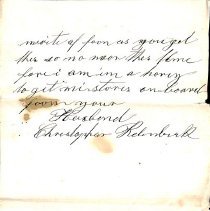 write as soon as you get
this so no moor this time
fore i am in a horey
to git mi stores on board
from your
Husbond
Christopher